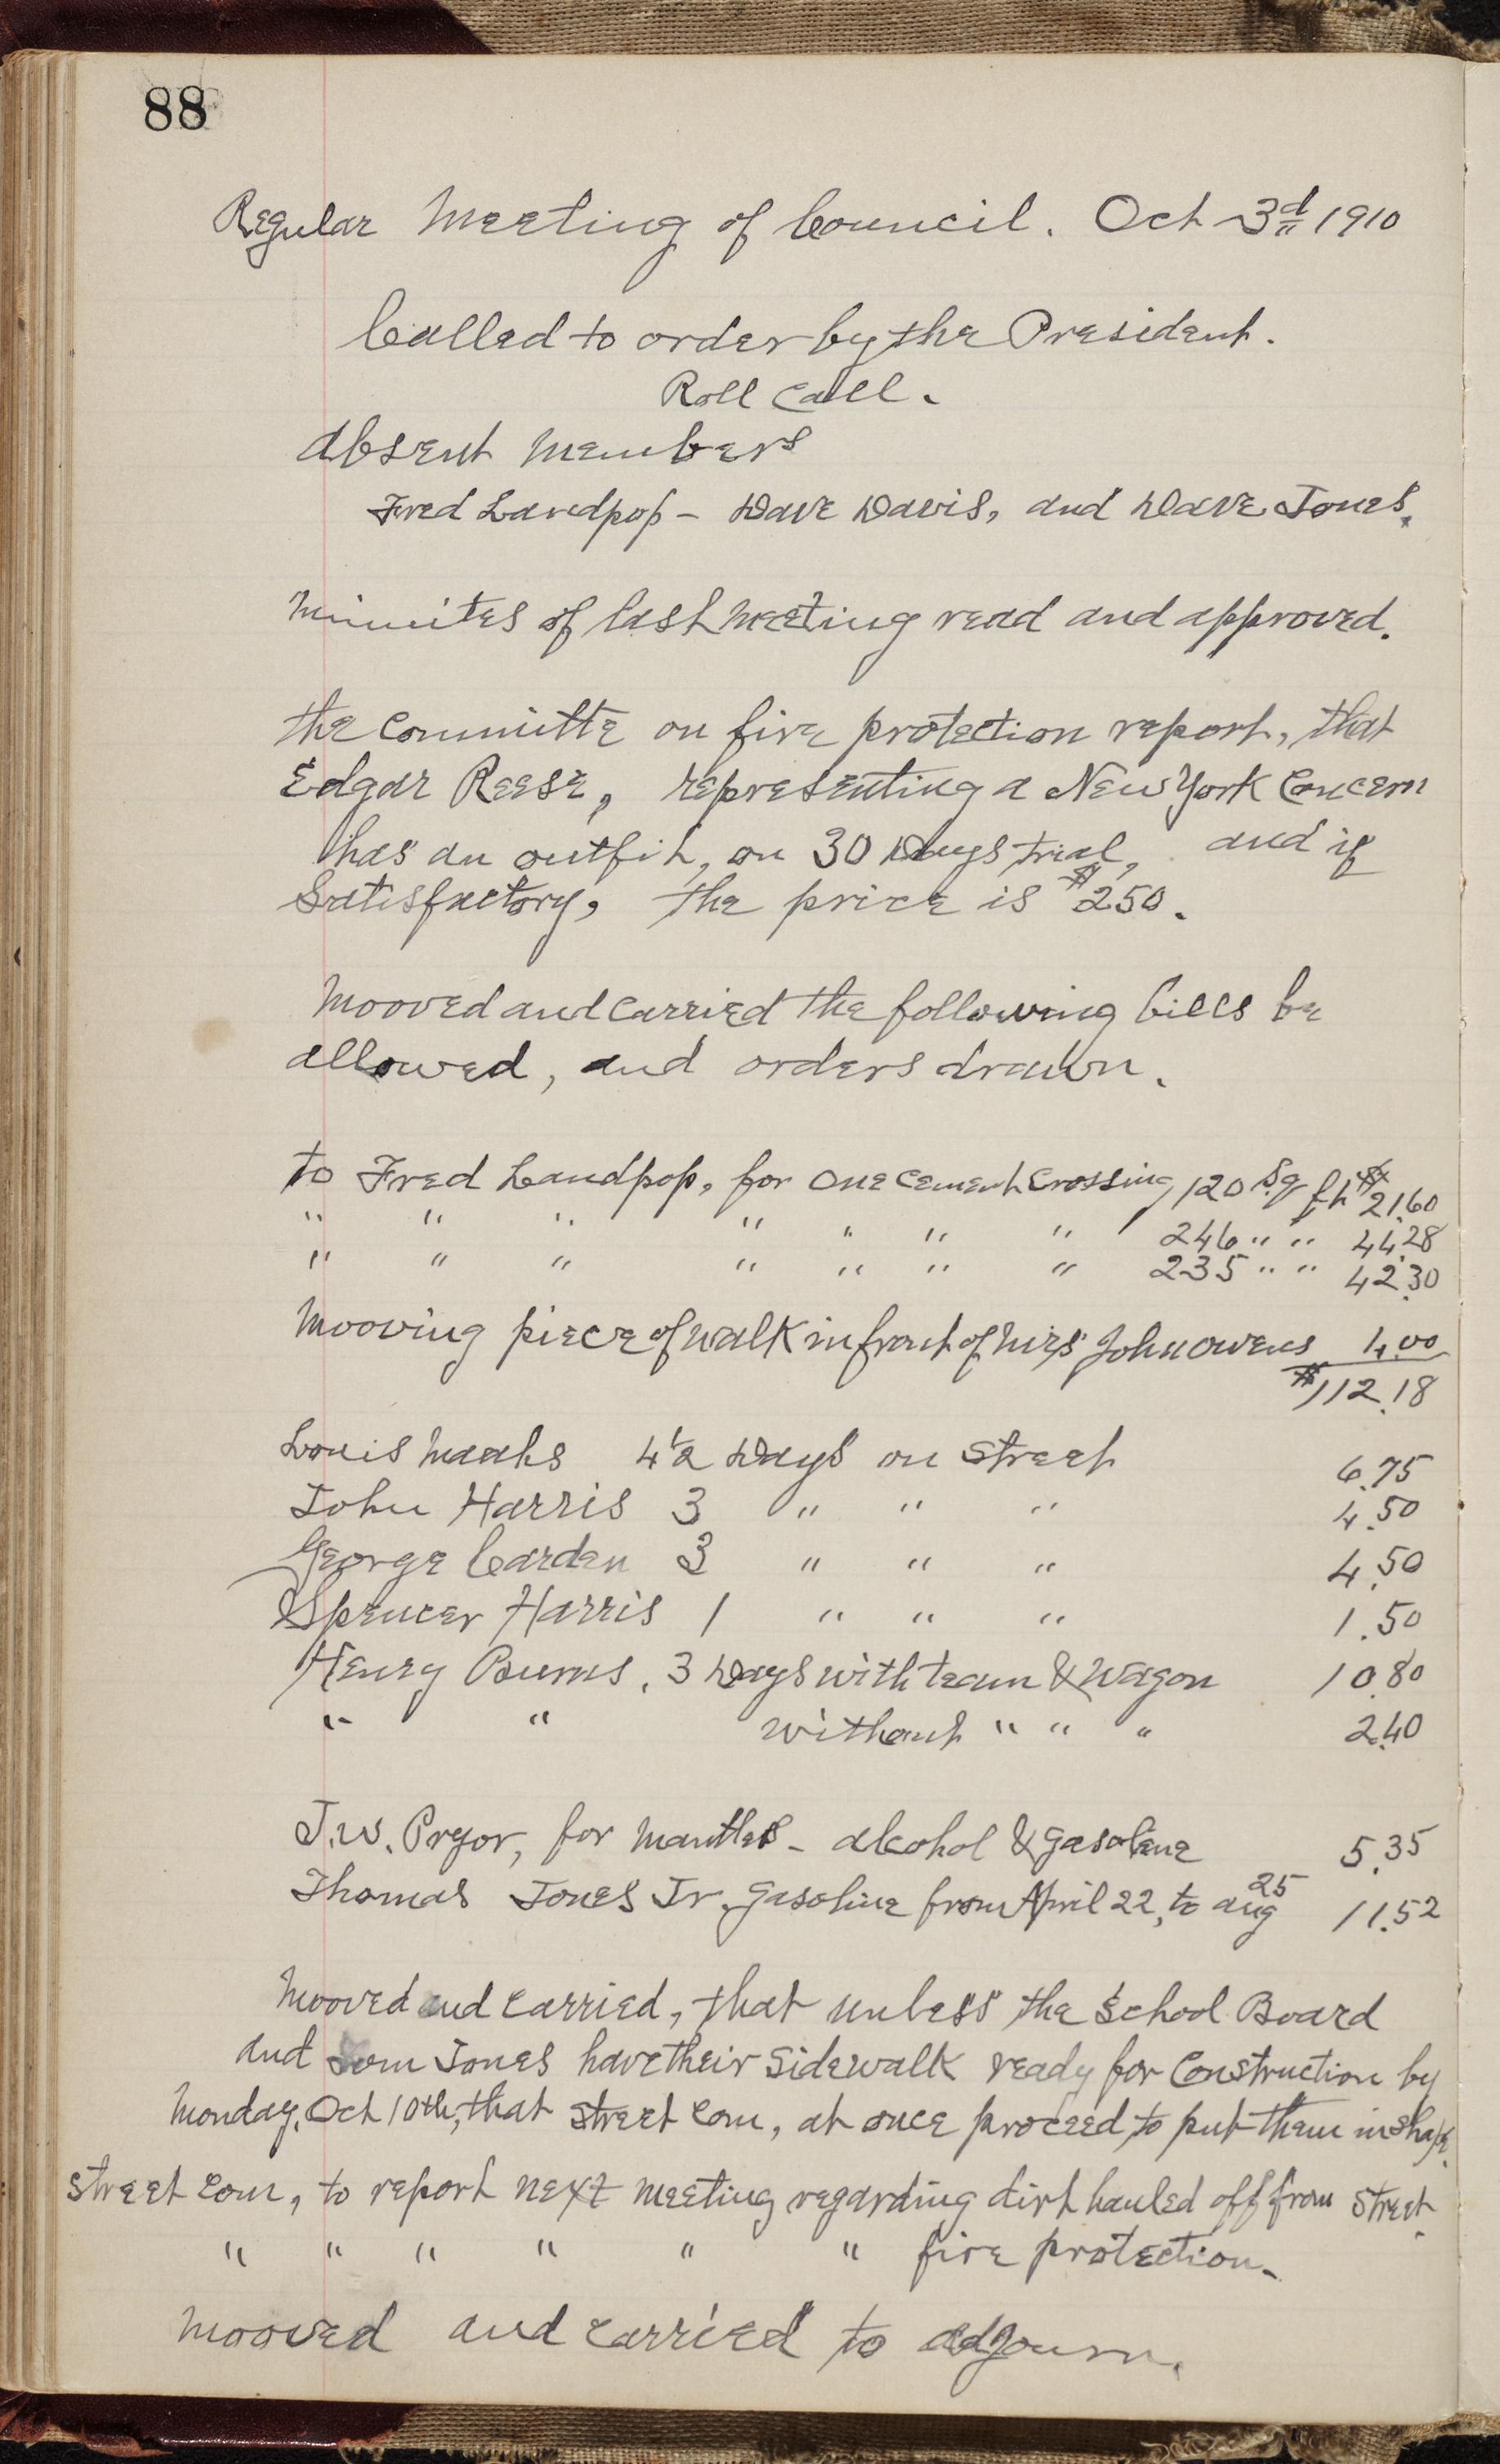 88
Regular Meeting of Council. Oct 3d 1910
Called to order by the President.
Roll Call.
Absent Members
Fred Landpop - Dave Davis, and Dave Jones.
Minuites of last Meeting read and approved.
the Committe on fire protection report, that
Edgar Reese, representing a New York Concern
has an outfit, on 30 Days trial, and if
Satisfactory, the price is $250.
Mooved and Carried the following bills be
allowed, and orders drawn.
to Fred Landpop, for One Cement Crossing 120 Sq ft $21.60
" " " " " " " 246 " " 44.28
" " " " " " " 235 " " 42.30
Mooving piece of walk in front of Mrs John Owens 1.00
$112.18
Louis Manks 4 1/2 Days on Street 6.75
John Harris 3 " " " 4.50
George Carden 3 " " " 4.50
Spencer Harris 1 " " " 1.50
Henry Burns, 3 Days with team & Wagon 10.80
" " without " " " 2.40
J.W. Pryor, for Mantles - alcohol & gasolene 5.35
Thomas Jones Jr. gasoline from April 22, to Aug 25 11.52
Mooved and carried, that unless the School Board
and Tom Jones have their Sidewalk ready for Construction by
Monday, Oct 10th, that Street Com, at once proceed to put them in shape.
Street Com, to report next meeting regarding dirt hauled off from Street.
" " " " " " fire protection.
Mooved and carried to adjourn.